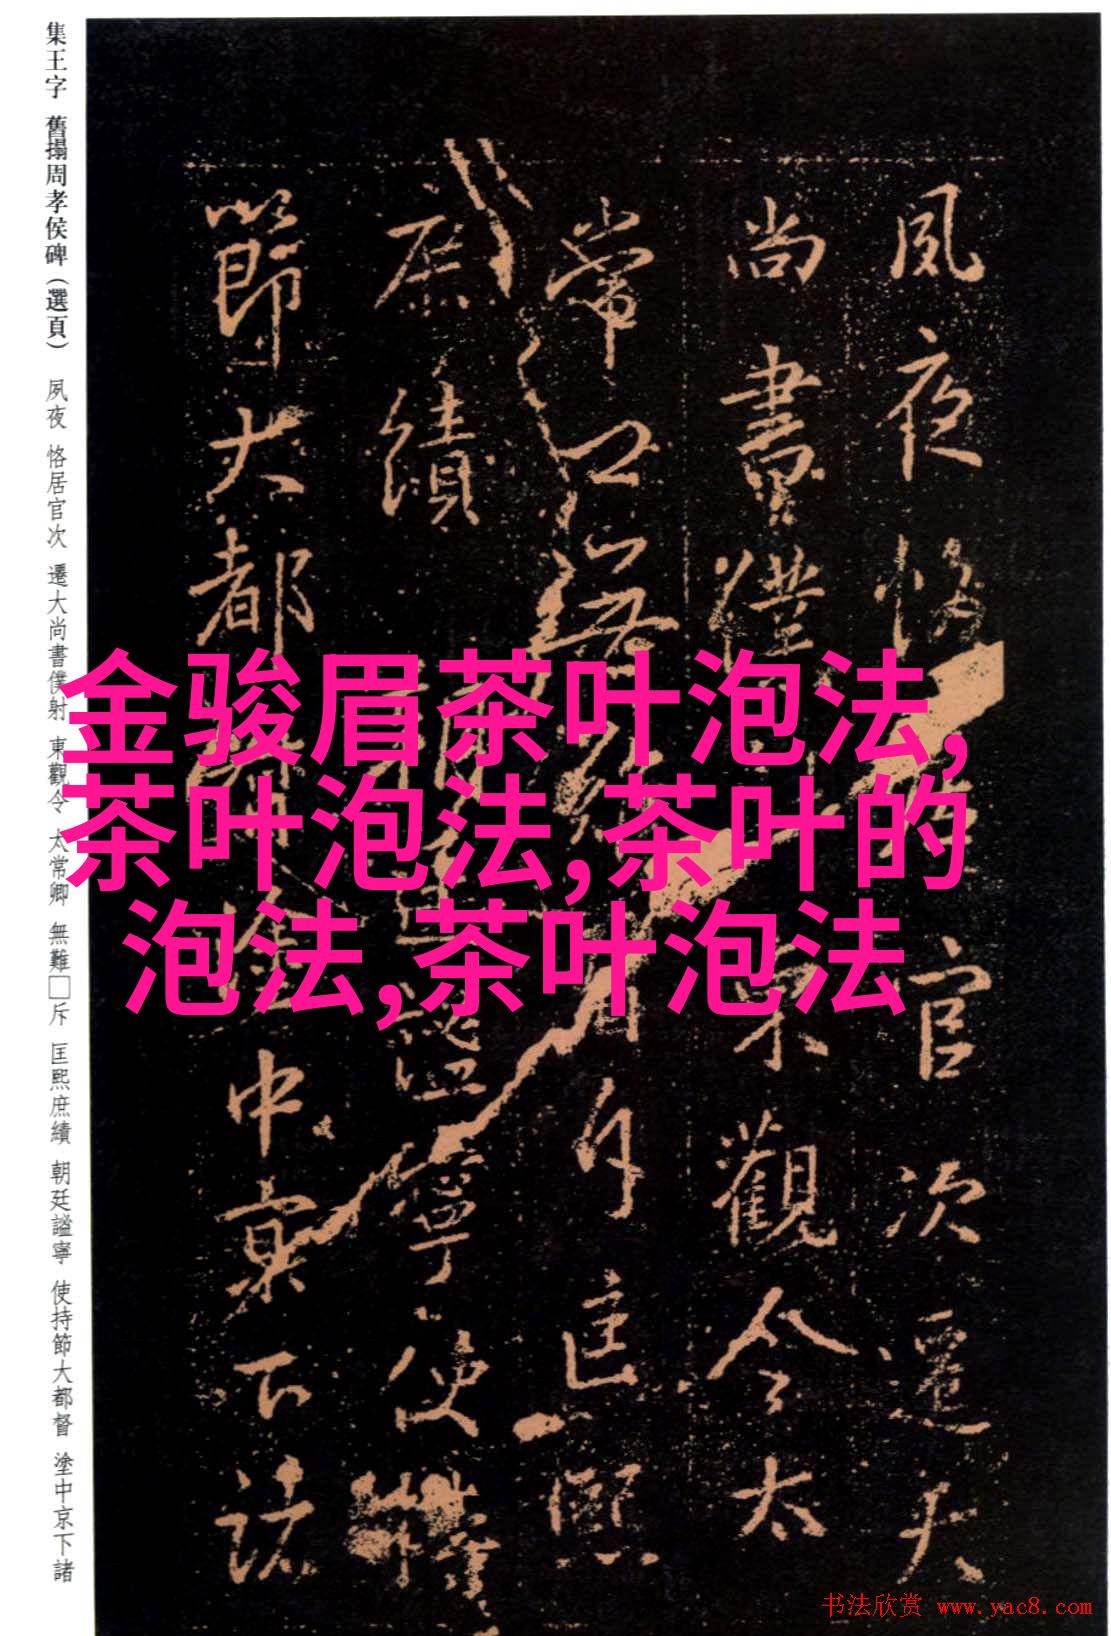 集王字 舊搨周孝侯碑（選頁） 夙夜 恪居官次 遷大尚書僕射 東觀令 太常卿 無難□斥 匡熙庶績 朝廷謚寧 使持節大都督 塗中京下諸
夙夜恪官次遷大
尚書僕東觀令太
常斥匡熙
庶績謚寧使持
節大都中京下諸
金骏眉茶叶泡法,
茶叶泡法,茶叶的
泡法,茶叶泡法
书法欣赏 www.yac8.com